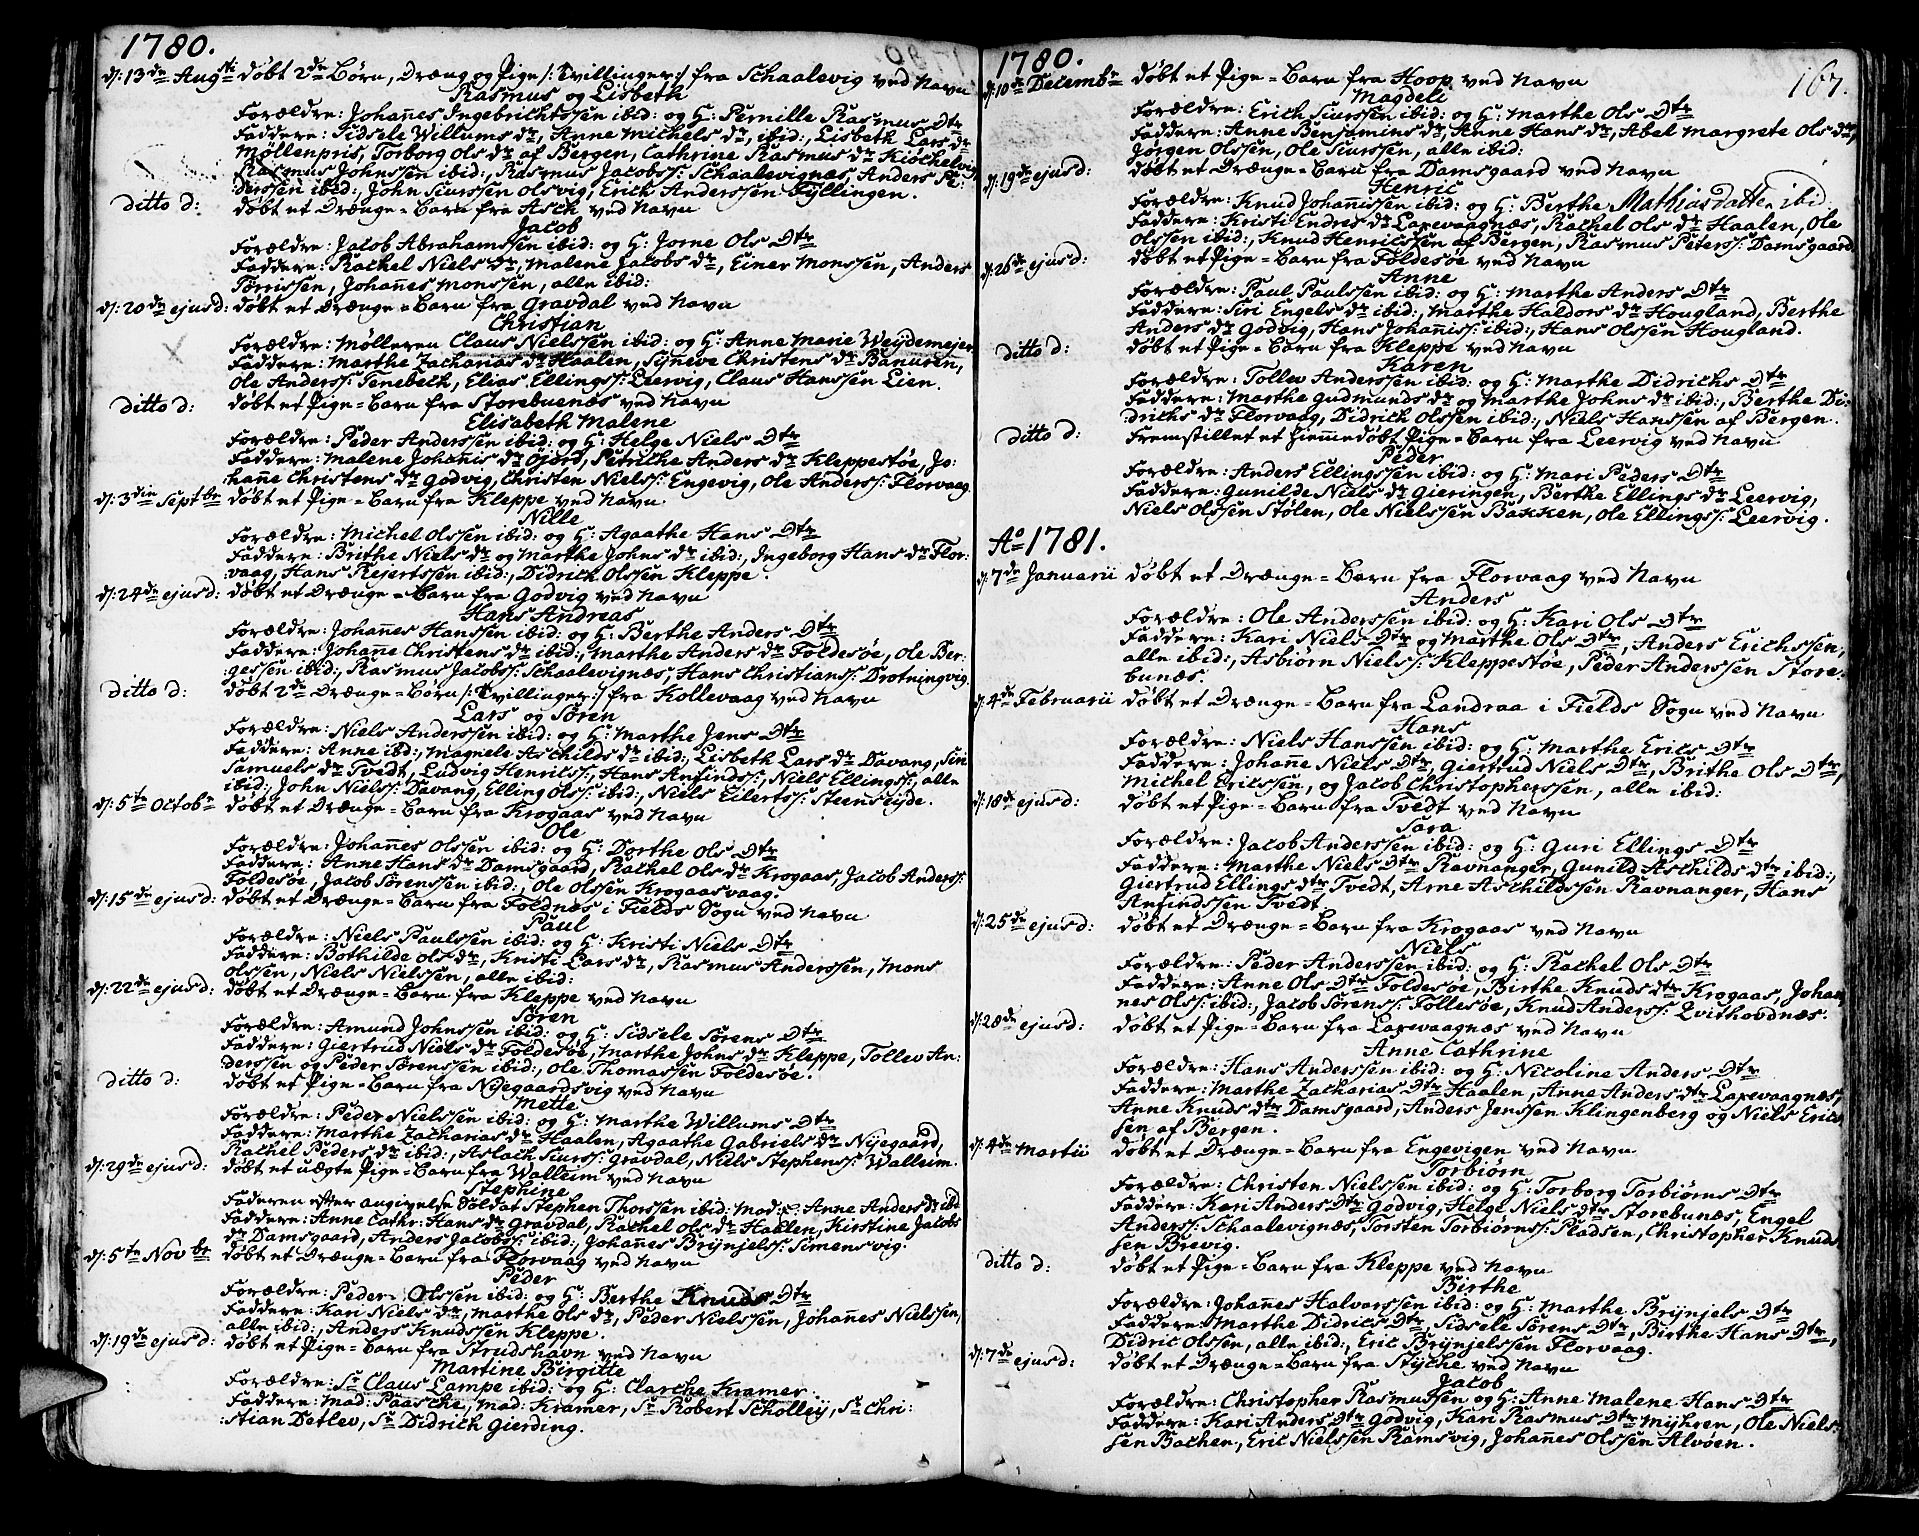 1780.
d: 13de Augsti døbt 2de Børn, Dræng og Pige /: Tvillinger :/ fra Schaalevig ved Navn
Rasmus og Lisbeth
Forældre: Johañes Ingebrichtssen ibid: og H: Pernille Rasmus Dtr
Faddere: Sidsele Willums dr, Anne Michels dr, ibid:, Lisbeth Lars dr
Møllenpris, Torborg Ols dr af Bergen, Cathrine Rasmus dr Kiøchelvig
Rasmus Johnssen ibid:, Rasmus Jacobss: Schaalevignæs, Anders Pe:
derssen ibid:, John Siurssen Olsvig, Erich Anderssen Fyllingen.
ditto d: døbt et Drænge=Barn fra Asch ved Navn
Jacob
Forældre: Jacob Abrahamssen ibid: og H: Jorne Ols Dtr
Faddere: Rachel Niels Dr, Malene Jacobs dr, Einer Monssen, Anders
Tørrissen, Johañes Monssen, alle ibid:
d: 20de ejusd: døbt et Drænge=Barn fra Gravdal ved Navn
Christian
Forældre: Mølleren Claus Nielssen ibid: og H: Anne Marie Weydemejer
Faddere: Marthe Zacharias dr Haalen, Syneve Christens dr Banuren,
Ole Anderss: Tenebech, Elias Ellingss: Leervig, Claus Hanssen Lien.
ditto d: døbt et Pige=Barn fra Storebuenæs ved Navn
Elisabeth Malene
Forældre: Peder Anderssen ibid: og H: Helge Niels Dtr
Faddere: Malene Johañis dr Gjord, Petriche Anders dr Kleppestøe, Jo:
hañe Christens dr Godvig, Christen Nielss: Engevig, Ole Anderss: Florvaag
d: 3die Septbr døbt et Pige=Barn fra Kleppe ved Navn
Nille
Forældre: Michel Olssen ibid: og H: Agaathe Hans Dtr
Faddere: Brithe Niels dr og Marthe Johns dr ibid:, Ingeborg Hans dr Flor-
vaag, Hans Rejertssen ibid:, Didrich Olssen Kleppe.
d: 24de ejusd: døbt et Drænge=Barn fra Godvig ved Navn
Hans Andreas
Forældre: Johañes Hanssen ibid: og H: Berthe Anders Dtr
Faddere: Johañe Christens dr ibid:, Marthe Anders dr Foldesøe, Ole Ber-
gessen ibid:, Rasmus Jacobss: Schaalevignæs, Hans Christianss: Drotningvig.
ditto d: døbt 2de Drænge=Børn /: Tvillinger :/ fra Kollevaag ved Navn
Lars og Søren
Forældre: Niels Anderssen ibid: og H: Marthe Jens Dtr
Faddere: Anne ibd:, Magnele Aschilds dr ibid:, Lisbeth Lars dr Davang, Siri
Samuels dr Tvedt, Ludvig Henricss:, Hans Anfindss:, Niels Ellingss:, alle
ibid:, John Nielss: Davang, Elling Olss: ibid:, Niels Eilertss: Steenseyde.
d: 5te Octobr døbt et Drænge=Barn fra Krogaas ved Navn
Ole
Forældre: Johañes Olssen ibid: og H: Dorthe Ols Dtr
Faddere: Anne Hans dr Damsgaard, Rachel Ols dr Krogaas, Jacob Anderss:
Foldesøe, Jacob Sørenssen ibid:, Ole Olssen Krogaasvaag.
d: 15de ejusd: døbt et Drænge=Barn fra Foldnæs i Fields Sogn ved Navn
Paul
Forældre: Niels Paulssen ibid: og H: Kristi Niels Dtr
Faddere: Bothilde Ols dr, Kristi Lars dr, Rasmus Anderssen, Mons
Olssen, Niels Nielssen, alle ibid:
d: 22de ejusd: døbt et Drænge=Barn fra Kleppe ved Navn
Søren
Forældre: Amund Johnssen ibid: og H: Sidsele Sørens Dtr
Faddere: Giertrud Niels dr Foldesøe, Marthe Johns dr Kleppe, Tollev An-
derssen og Peder Sørenssen ibid:, Ole Thomassen Foldesøe.
ditto d: døbt et Pige=Barn fra Nyegaardsvig ved Navn
Mette
Forældre: Peder Nielssen ibid: og H: Marthe Willums Dtr
Faddere: Marthe Zacharias dr Haalen, Agaathe Gabriels dr Nyegaard,
Rachel Peders dr ibid:, Aslach Siurss: Gravdal, Niels Stephenss: Walleim.
d: 29de ejusd: døbt et uægte Pige=Barn fra Walleim ved Navn
Stephine
Faderen efter angivelse Soldat Stephen Thorssen ibid: Mod:e Anne Anders dr ibd
Faddere: Anne Cathr: Hans dr Gravdal, Rachel Ols dr Haalen, Kirstine Jacobs
dr Damsgaard, Anders Jacobss: ibid:, Johañes Brynjelss: Simensvig.
d: 5te Novbr døbt et Drænge=Barn fra Florvaag ved Navn
Peder
Forældre: Peder Olssen ibid: og H: Berthe Knuds Dtr
Faddere: Kari Niels dr, Marthe Ols dr, Peder Nielssen, Johañes Nielssen,
alle ibid:, Anders Knudssen Kleppe.
d: 19de ejusd: døbt et Pige=Barn fra Strudshavn ved Navn
Martine Birgitte
Forældre: Sr Claus Lampe ibid: og H: Clarche Kramer.
Faddere: Mad: Paasche, Mad: Kramer, Sr Robert Scholley, Sr Chri:
:stian Detlev, Sr Didrich Gierding.
1780. 167.
d: 10de Decembr døbt et Pige=Barn fra Hoop ved Navn
Magdeli
Forældre: Erich Siurssen ibid: og H: Marthe Ols Dtr
Faddere: Anne Benjamins dr, Anne Hans dr, Abel Margrete Ols dr,
Jørgen Olssen, Ole Siurssen, alle ibid:
d: 19de ejusd: døbt et Drænge=Barn fra Damsgaard ved Navn
Henric
Forældre: Knud Johañissen ibid: og H: Berthe Mathias datter ibid.
Faddere: Kristi Endres dr Laxevaagnæs, Rachel Ols dr Haalen, Ole
Olssen ibid:, Knud Henricssen af Bergen, Rasmus Peterss: Damsgaard
d: 26de ejusd: døbt et Pige=Barn fra Foldesøe ved Navn
Anne
Forældre: Paul Paulssen ibid: og H: Marthe Anders Dtr
Faddere: Siri Engels dr ibid:, Marthe Haldors dr Hougland, Berthe
Anders dr Godvig, Hans Johañiss: ibid:, Hans Olssen Hougland.
ditto d: døbt et Pige=Barn fra Kleppe ved Navn
Karen
Forældre: Tollev Anderssen ibid: og H: Marthe Didrichs Dtr
Faddere: Marthe Gudmunds dr og Marthe Johns dr ibid:, Berthe Di:
drichs dr Florvaag, Didrich Olssen ibid:, Niels Hanssen af Bergen.
ditto d: Fremstillet et hiemmedøbt Pige=Barn fra Leervig ved Navn
Peder
Forældre: Anders Ellingssen ibid: og H: Mari Peders Dtr
Faddere: Gunilde Niels dr Gieringen, Berthe Ellings dr Leervig,
Niels Olssen Stølen, Ole Nielssen Bakken, Ole Ellingss: Leervig.
Ao 1781.
d: 7de Januarii døbt et Drænge=Barn fra Florvaag ved Navn
Anders
Forældre: Ole Anderssen ibid: og H: Kari Ols Dtr
Faddere: Kari Niels Dtr og Marthe Ols Dtr, Anders Erichssen,
alle ibid:, Asbiørn Nielss: Kleppestøe, Peder Anderssen Store:
bunæs.
d: 4de Februarii døbt et Drænge=Barn fra Landraa i Fields Sogn ved Navn
Hans
Forældre: Niels Hanssen ibid: og H: Marthe Erics Dtr
Faddere: Johañe Niels Dtr, Giertrud Niels Dtr, Brithe Ols Dtr,
Michel Ericssen, og Jacob Christopherssen, alle ibid:
d: 18de ejusd: døbt et Pige=Barn fra Tvedt ved Navn
Sara
Forældre: Jacob Anderssen ibid: og H: Guri Ellings Dtr
Faddere: Marthe Niels Dtr Ravnanger, Gunild Aschilds dtr ibid:,
Giertrud Ellings dtr Tvedt, Arne Aschildssen Ravnanger, Hans
Anfindssen Tvedt.
d: 25de ejusd: døbt et Drænge=Barn fra Krogaas ved Navn
Niels
Forældre: Peder Anderssen ibid: og H: Rachel Ols Dtr
Faddere: Anne Ols Dtr Foldesøe, Birthe Knuds dtr Krogaas, Johan
nes Olss: ibid:, Jacob Sørenss: Follesøe, Knud Anderss: Qvithovdnæs.
d: 28de ejusd: døbt et Pige=Barn fra Laxevaagnæs ved Navn
Anne Cathrine
Forældre: Hans Anderssen ibid: og H: Nicoline Anders Dtr
Faddere: Marthe Zacharias Dtr Haalen, Anne Anders dtr Laxevaagnæs,
Anne Knuds dtr Damsgaard, Anders Jenssen Klingenberg og Niels Eric
sen af Bergen.
d: 4de Martii døbt et Drænge=Barn fra Engevigen ved Navn
Torbiørn
Forældre: Christen Nielssen ibid: og H: Torborg Torbiørns Dtr
Faddere: Kari Anders Dtr Godvig, Helge Niels dtr Storebunæs, Engel
Anderss: Schaalevignæs, Torsten Torbiørnss: Pladsen, Christopher Knuds
sen Brevig.
ditto d: døbt et Pige=Barn fra Kleppe ved Navn
Birthe
Forældre: Johañes Halvorssen ibid: og H: Marthe Brynjels Dtr
Faddere: Marthe Didrics Dtr, Sidsele Sørens Dtr, Birthe Hans Dtr,
Didric Olssen, alle ibid:, Eric Brynjelssen Florvaag.
d: 7de ejusd: døbt et Drænge=Barn fra Styche ved Navn
Jacob
Forældre: Christopher Rasmussen og H: Anne Malene Hans Dtr
Faddere: Kari Anders Dtr Godvig, Kari Rasmus Dtr Myhren, Ole Niels:
sen Bachen, Eric Nielssen Ramsvig, Johañes Olssen Alvøen.